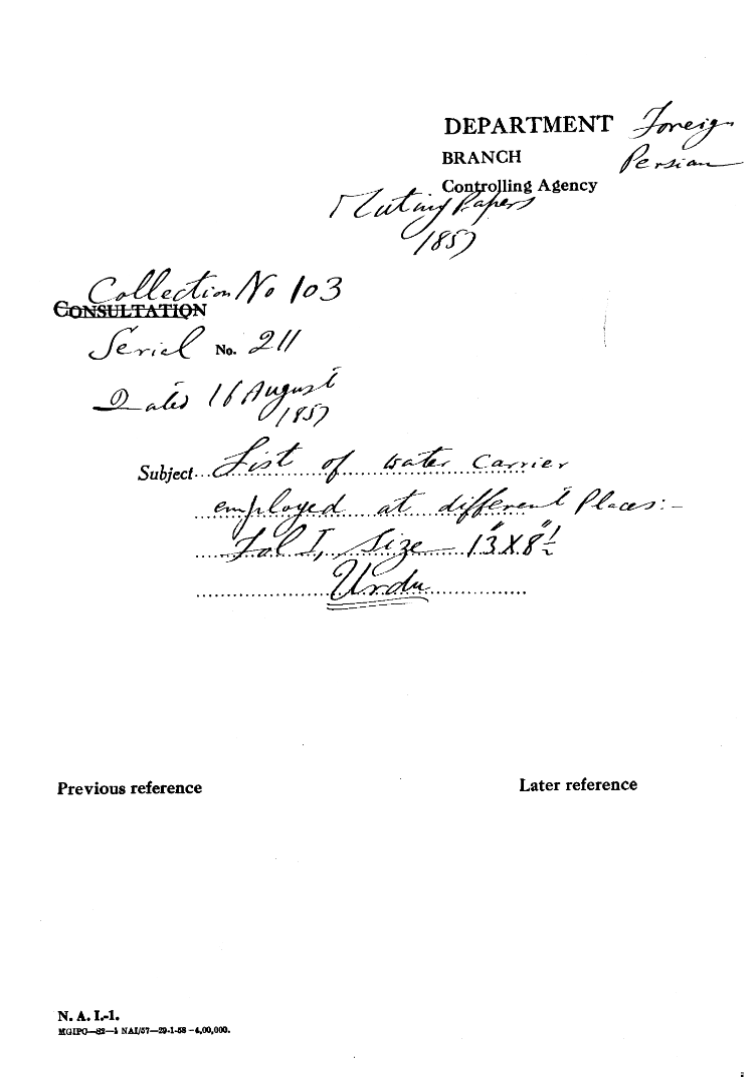 DEPARTMENT Foreign
BRANCH Persian
Controlling Agency
Mutiny Papers
1857
Collection No 103
CONSULTATION
Seriel No. 211
Dated 16 August
1857
Subject... List of water Carrier
employed at different Places:-
Fol I, Size 13"X8"½
Urdu
Previous reference Later reference
N. A. I.-1.
MGIPC—S2—1 NAI/57—29-1-58—4,00,000.